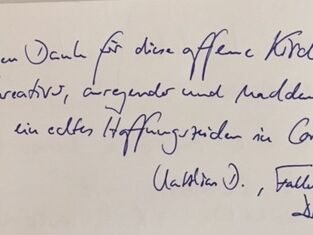 en Dank für diese offene Kirch
kreativ, anregend und nachden
ein echtes Hoffnungszeichen in Co
D., Falk